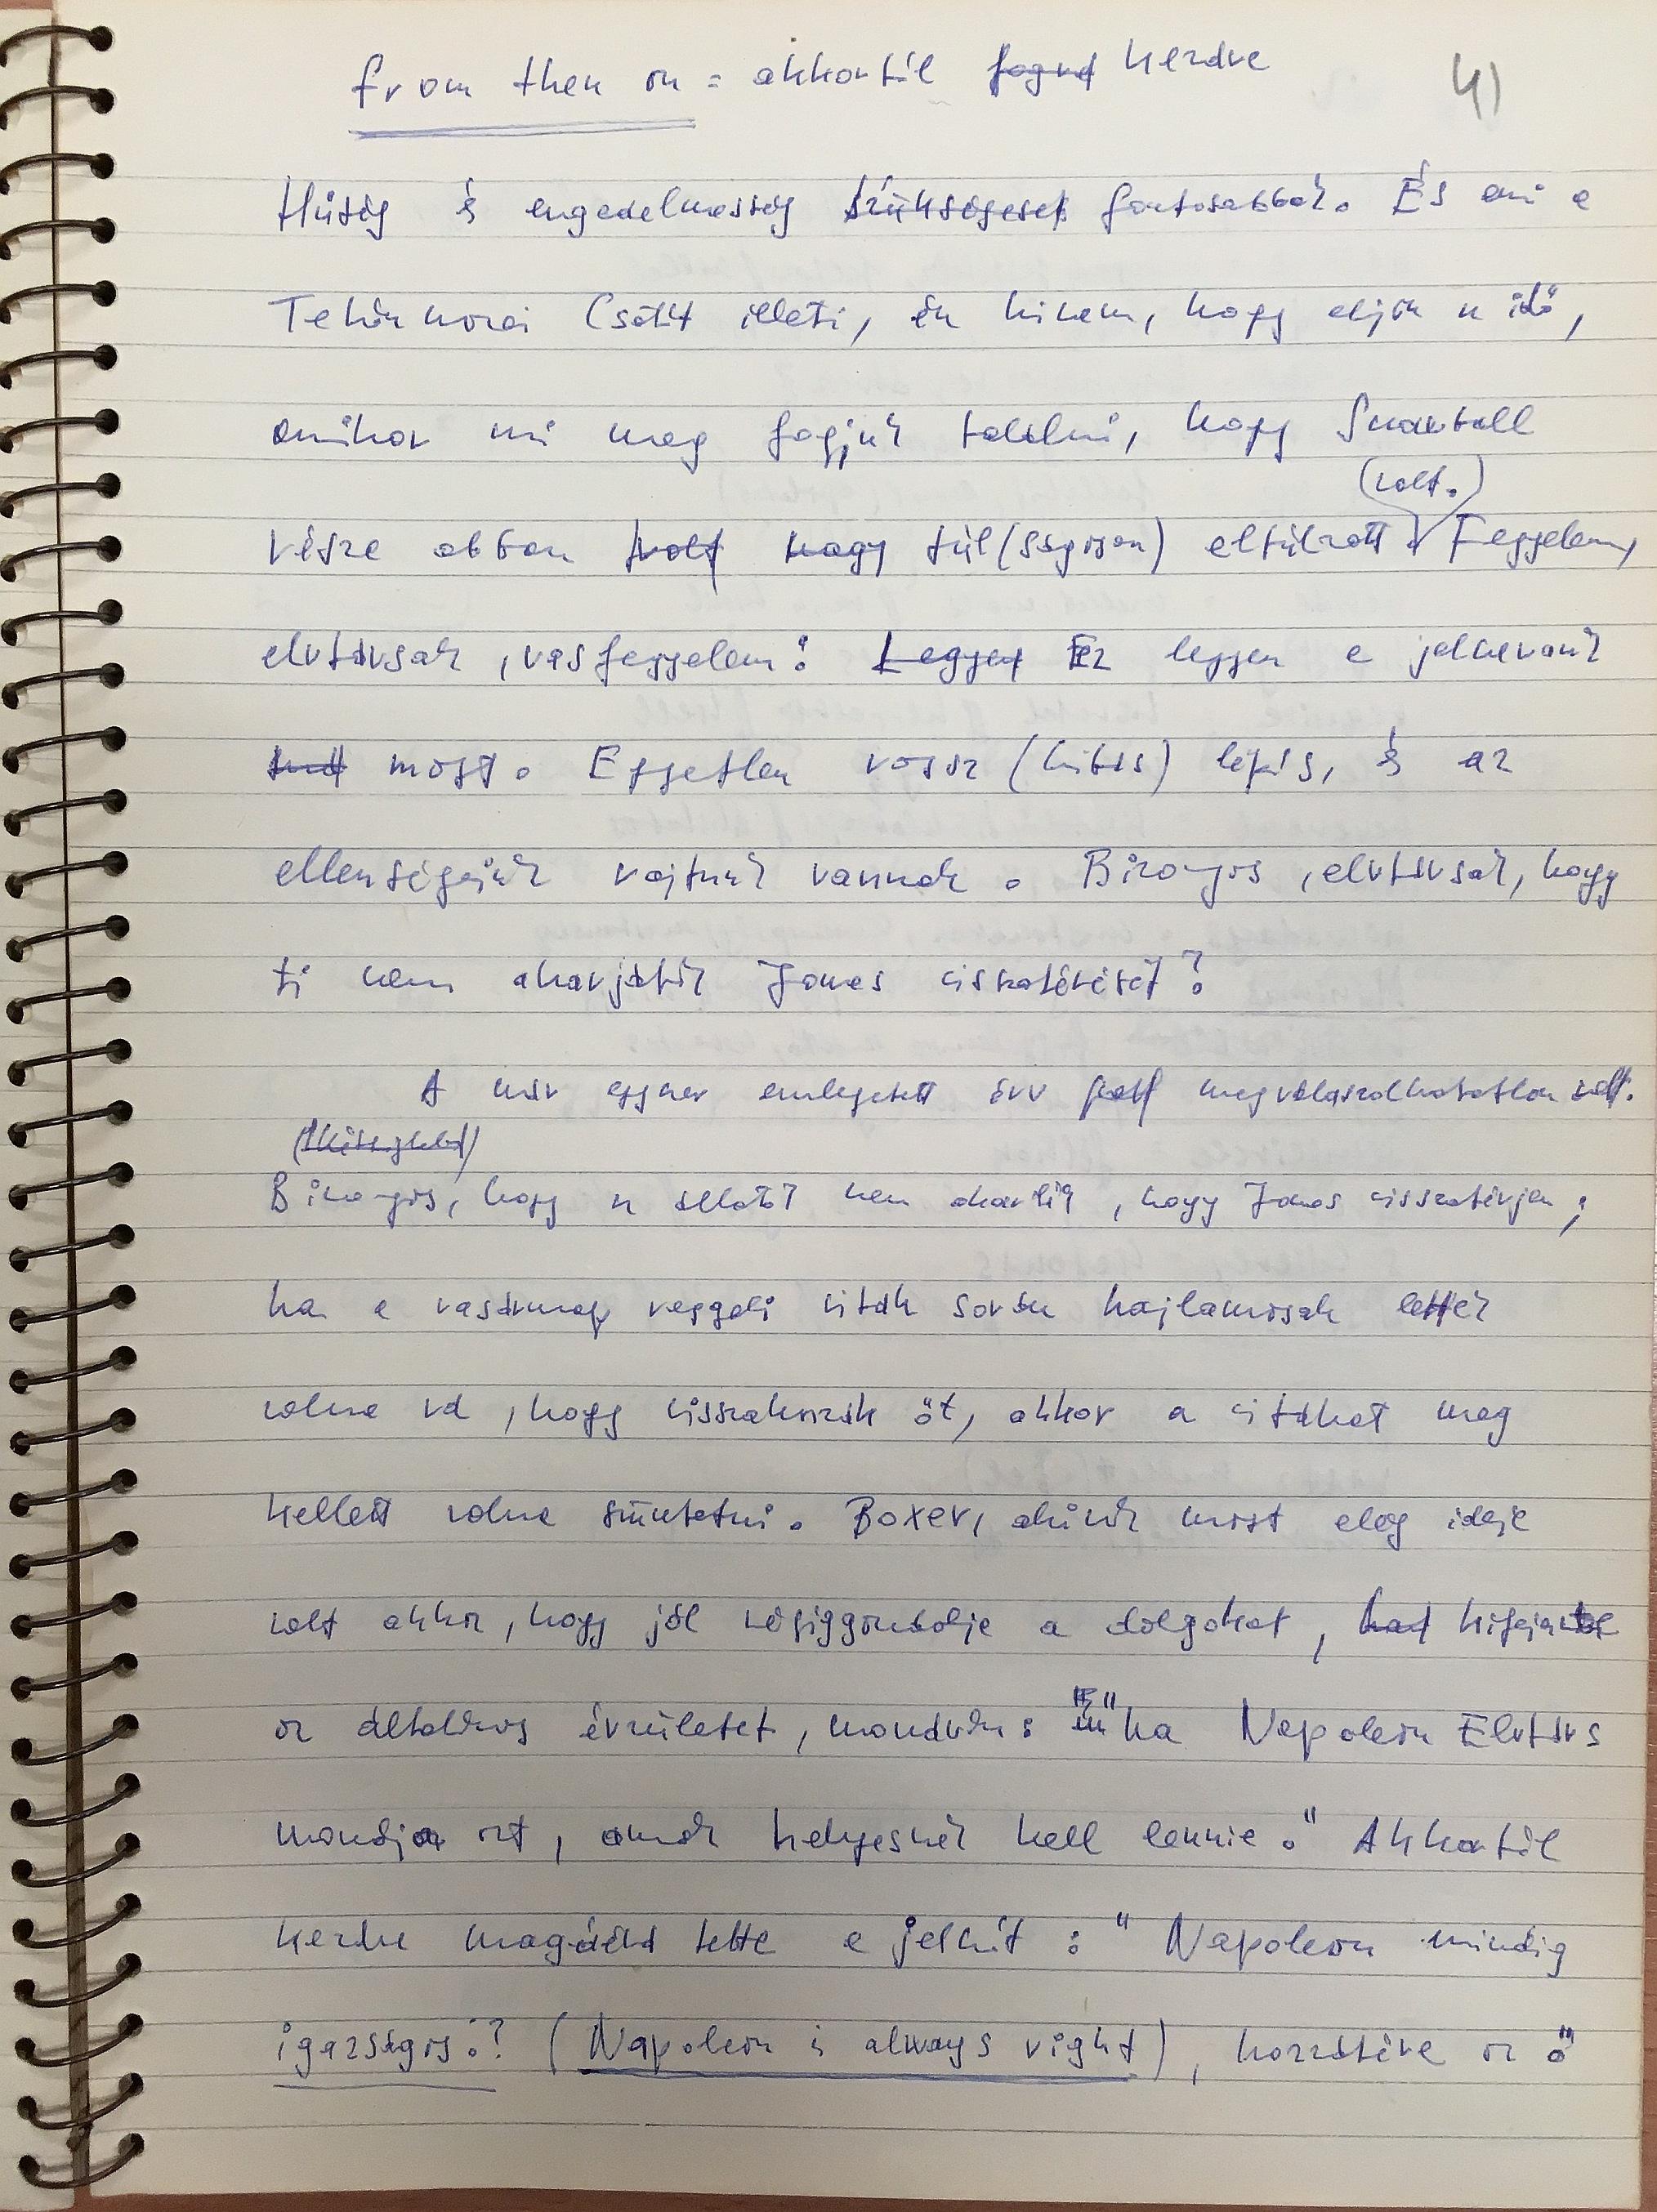 from then on = akkortól fogva kezdve
4)
Hűség és engedelmesség szükségesek fontosabbak. És ami a
Tehénkorai Csatát illeti, én hiszem, hogy eljön az idő,
amikor mi meg fogjuk találni, hogy Snowball
(volt.)
része abban volt nagy túl(ságosan) eltúlzott. Fegyelem,
elvtársak, vasfegyelem! Legyen Ez legyen a jelszavunk
most. Egyetlen rossz (hibás) lépés, és az
ellenségeink rajtunk vannak. Bizonyos, elvtársak, hogy
ti nem akarjátok Jones visszatérését?
A már egyszer emlegetett érv megválaszolhatatlan volt.
Bizonyos, hogy az állatok nem akarták, hogy Jones visszatérjen;
ha a vasárnap reggeli viták során hajlamosak lettek
volna rá, hogy visszahozzák őt, akkor a vitákat meg
kellett volna szüntetni. Boxer, akinek most elég ideje
volt akkor, hogy jól végiggondolja a dolgokat, kifejezte
az általános érzületet, mondván: "ha Napoleon Elvtárs
mondja ezt, annak helyesnek kell lennie." Akkortól
kezdve magáévá tette a jelszót: "Napoleon mindig
igazságos." (Napoleon is always right), hozzátéve az ő